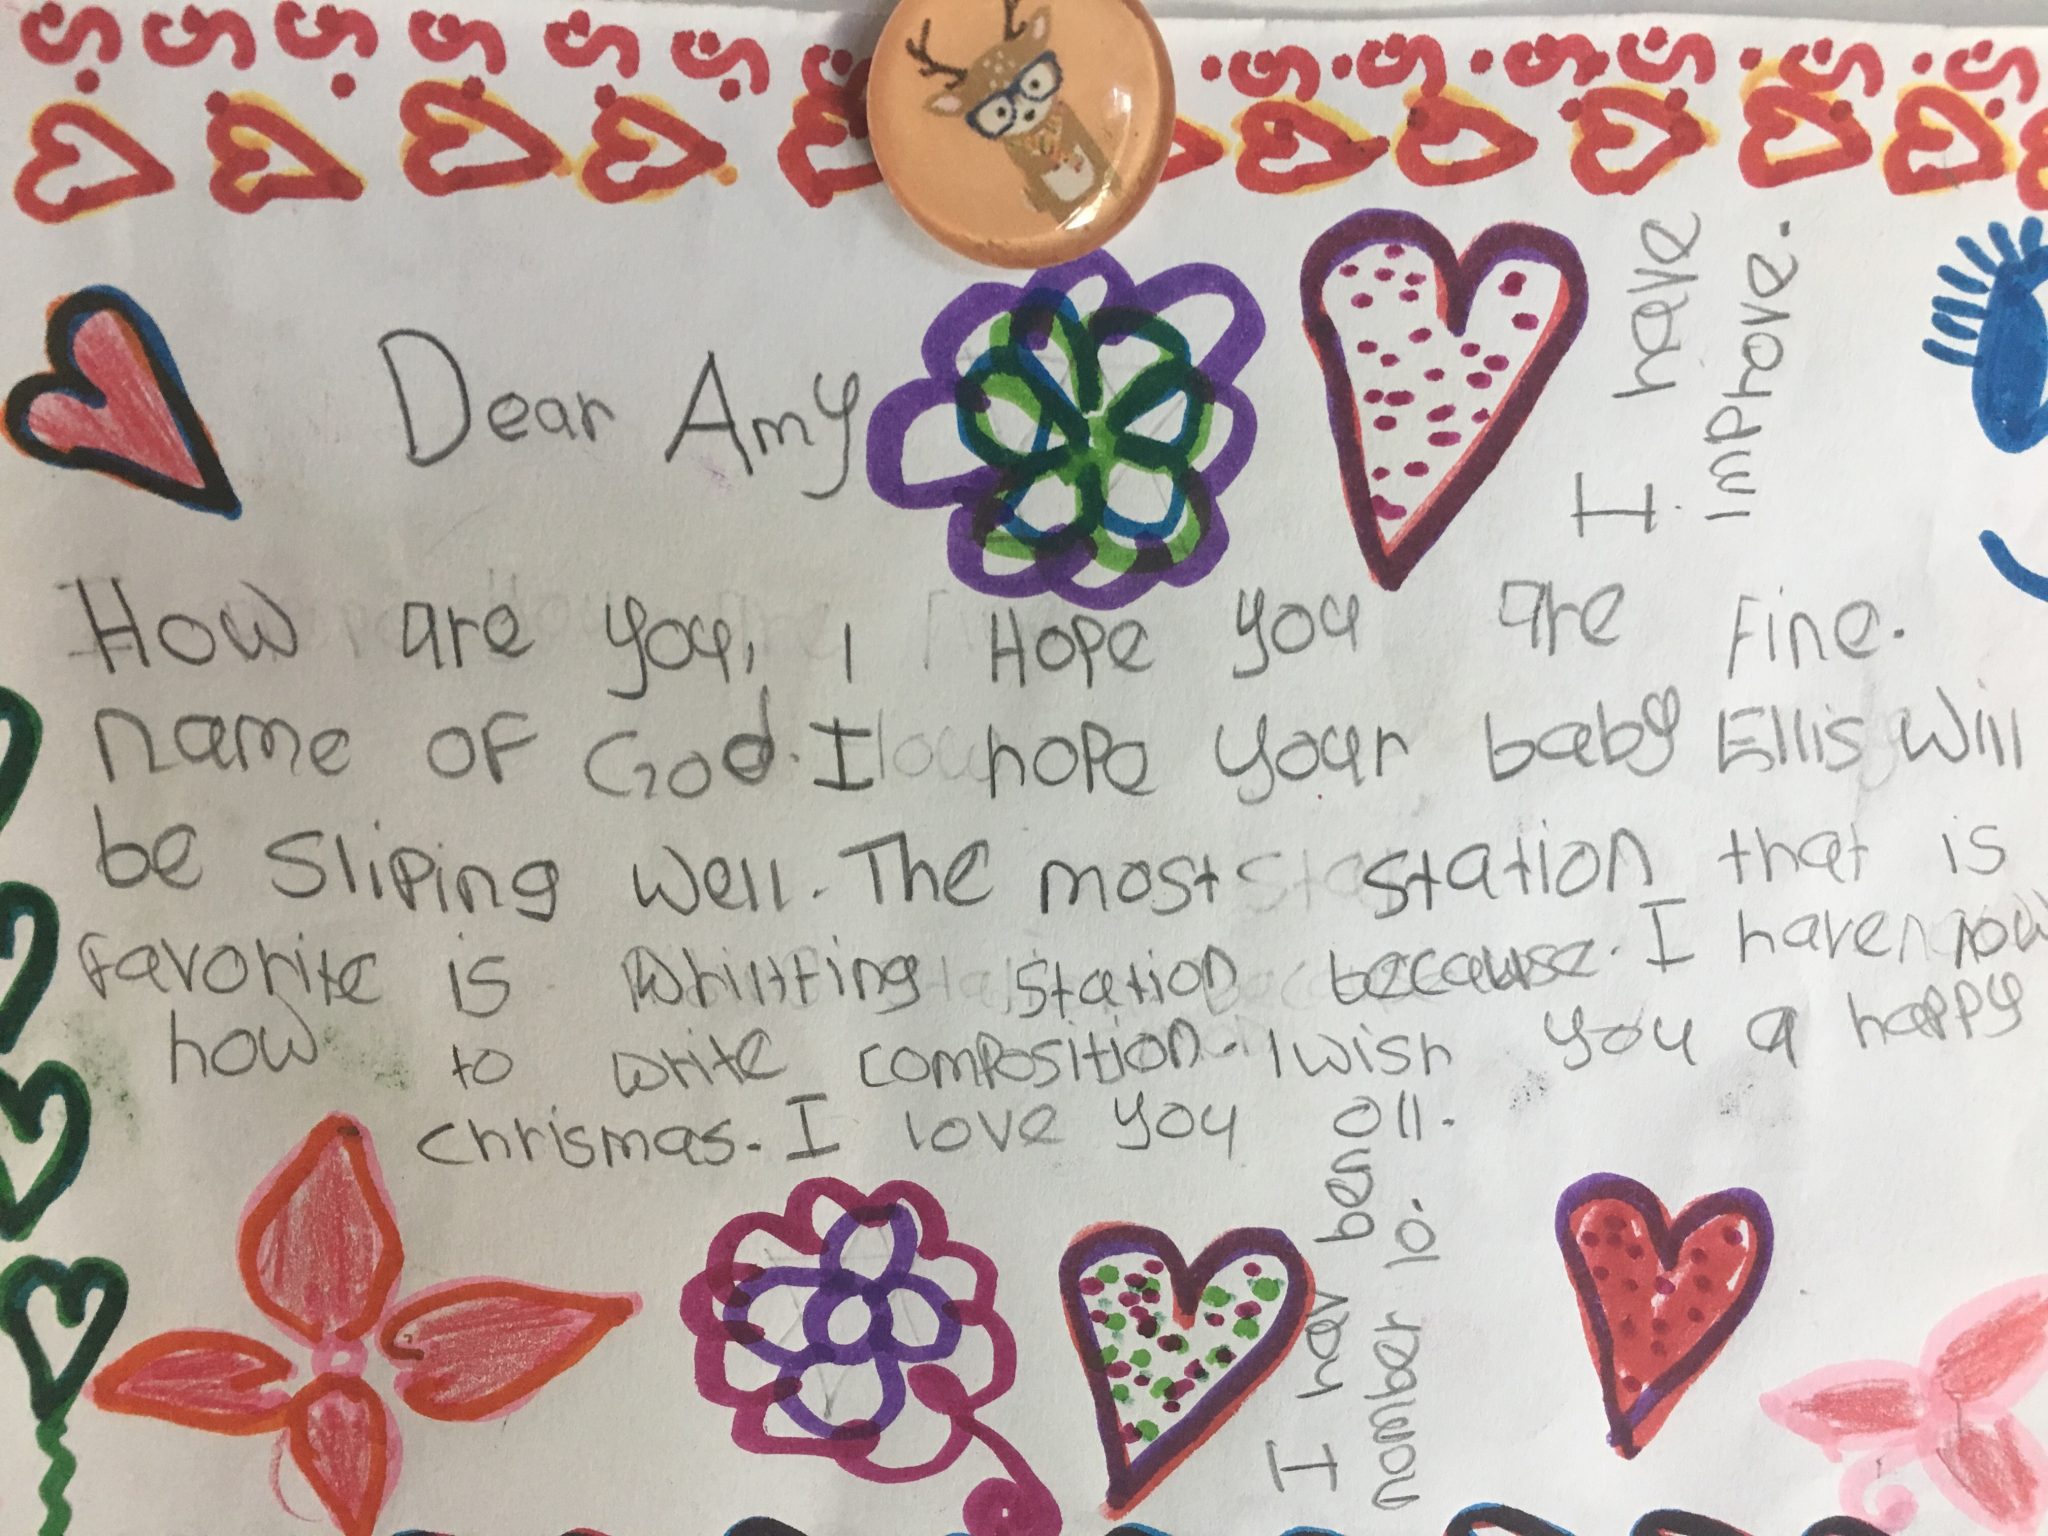 Dear Amy
How are you, I Hope you are Fine.
name of God. I hope your baby Ellis will
be Sliping well. The most station that is
favorite is whriitting station because. I have now
how to write composition. I wish you a happy
chrismas. I love you oll.
I have
improve.
I hav ben
number 10.